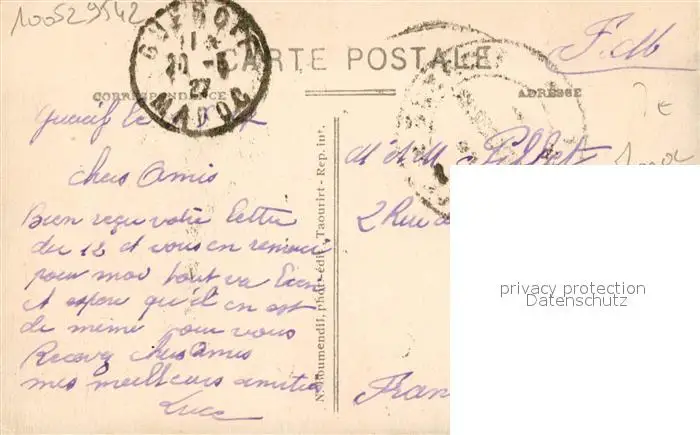 100529542
GUERCIF
11
20 -5
27
MAROC
CARTE POSTALE
F.M
CORRESPONDANCE
ADRESSE
Guercif le
chers Amis
Bien reçu votre lettre
du 12 et vous en remerci
pour moi tout va bien
et espere qu'il en est
de même pour vous
Recevez chers amis
mes meilleurs amities
N. Boumendil, phot-édit. Taourirt - Rep. int.
Mr & M
2 Rue
Fran
privacy protection
Datenschutz